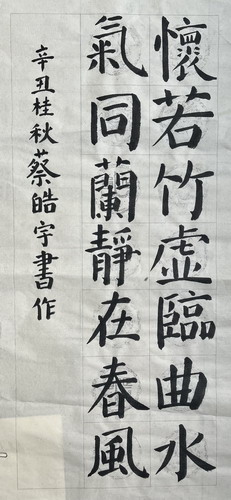 懷若竹虛臨曲水
氣同蘭靜在春風
辛丑桂秋蔡皓宇書作